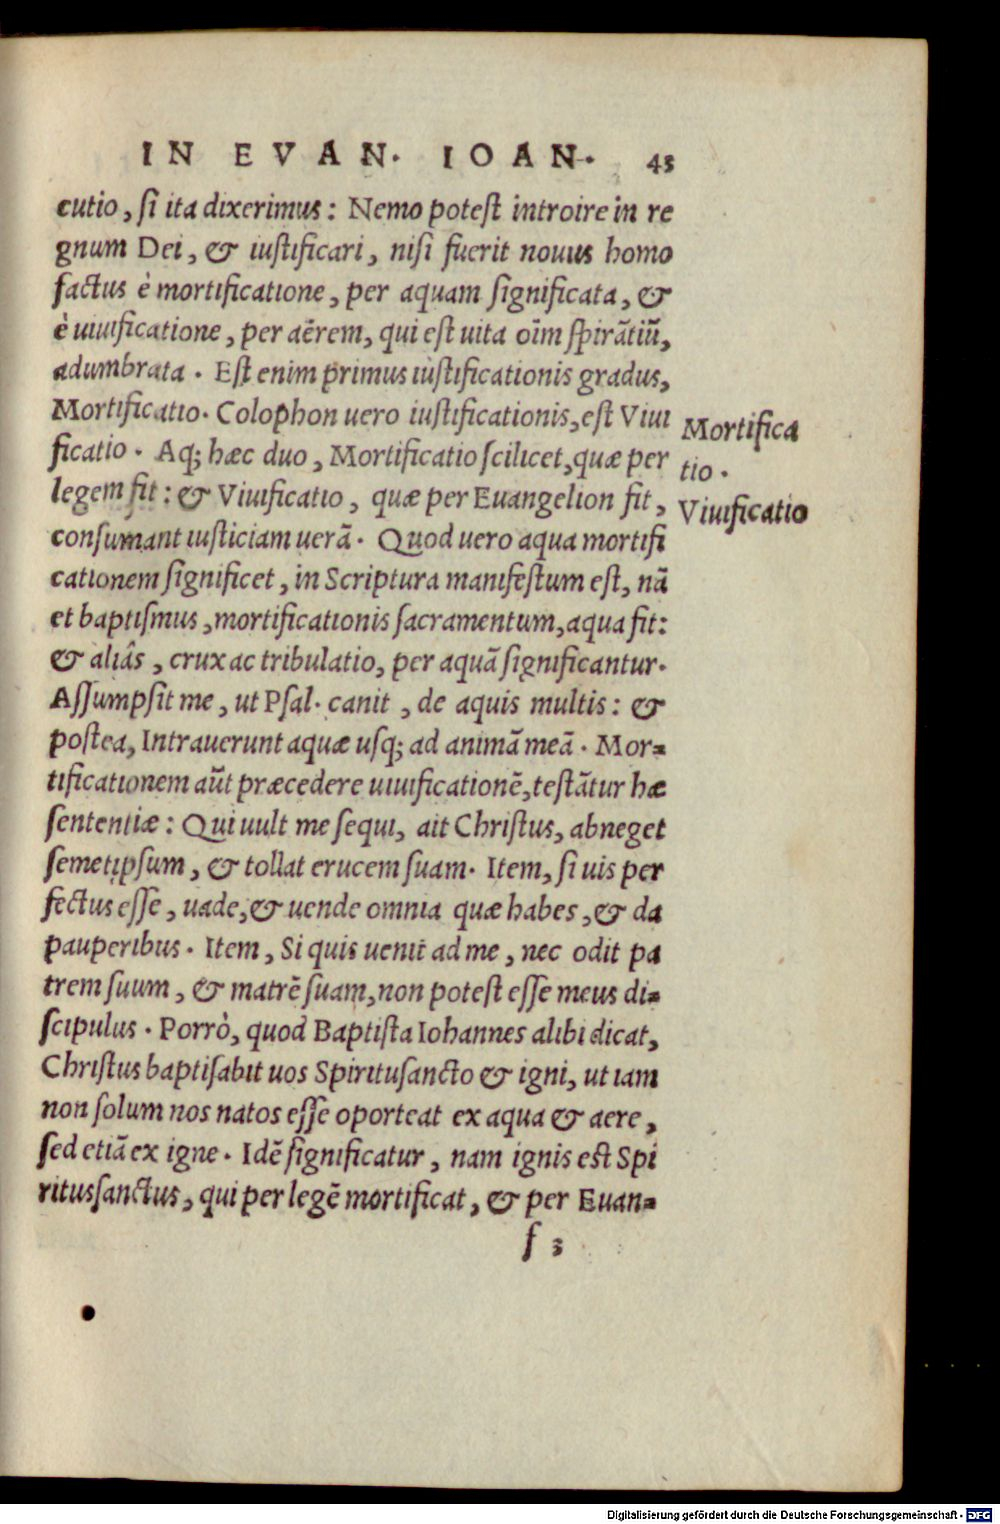 IN EVAN. IOAN. 43
cutio, si ita dixerimus: Nemo potest introire in re
gnum Dei, & iustificari, nisi fuerit nouus homo
factus è mortificatione, per aquam significata, &
è uiuificatione, per aērem, qui est uita oīm spirātiū,
adumbrata. Est enim primus iustificationis gradus,
Mortificatio. Colophon uero iustificationis, est Viui
ficatio. Aq; hæc duo, Mortificatio scilicet, quæ per
legem fit: & Viuificatio, quæ per Euangelion fit,
consumant iusticiam uerā. Quod uero aqua mortifi
cationem significet, in Scriptura manifestum est, nā
et baptismus, mortificationis sacramentum, aqua fit:
& aliâs, crux ac tribulatio, per aquā significantur.
Assumpsit me, ut Psal. canit, de aquis multis: &
postea, Intrauerunt aquæ usq; ad animā meā. Mor=
tificationem aūt præcedere uiuificationē, testātur hæ
sententiæ: Qui uult me sequi, ait Christus, abneget
semetipsum, & tollat erucem suam. Item, si uis per
fectus esse, uade, & uende omnia quæ habes, & da
pauperibus. Item, Si quis uenit ad me, nec odit pa
trem suum, & matrē suam, non potest esse meus di=
scipulus. Porrò, quod Baptista Iohannes alibi dicat,
Christus baptisabit uos Spiritusancto & igni, ut iam
non solum nos natos esse oporteat ex aqua & aere,
sed etiā ex igne. Idē significatur, nam ignis est Spi
ritussanctus, qui per legē mortificat, & per Euan=
f 3
Mortifica
tio.
Viuificatio
Digitalisierung gefördert durch die Deutsche Forschungsgemeinschaft - DFG